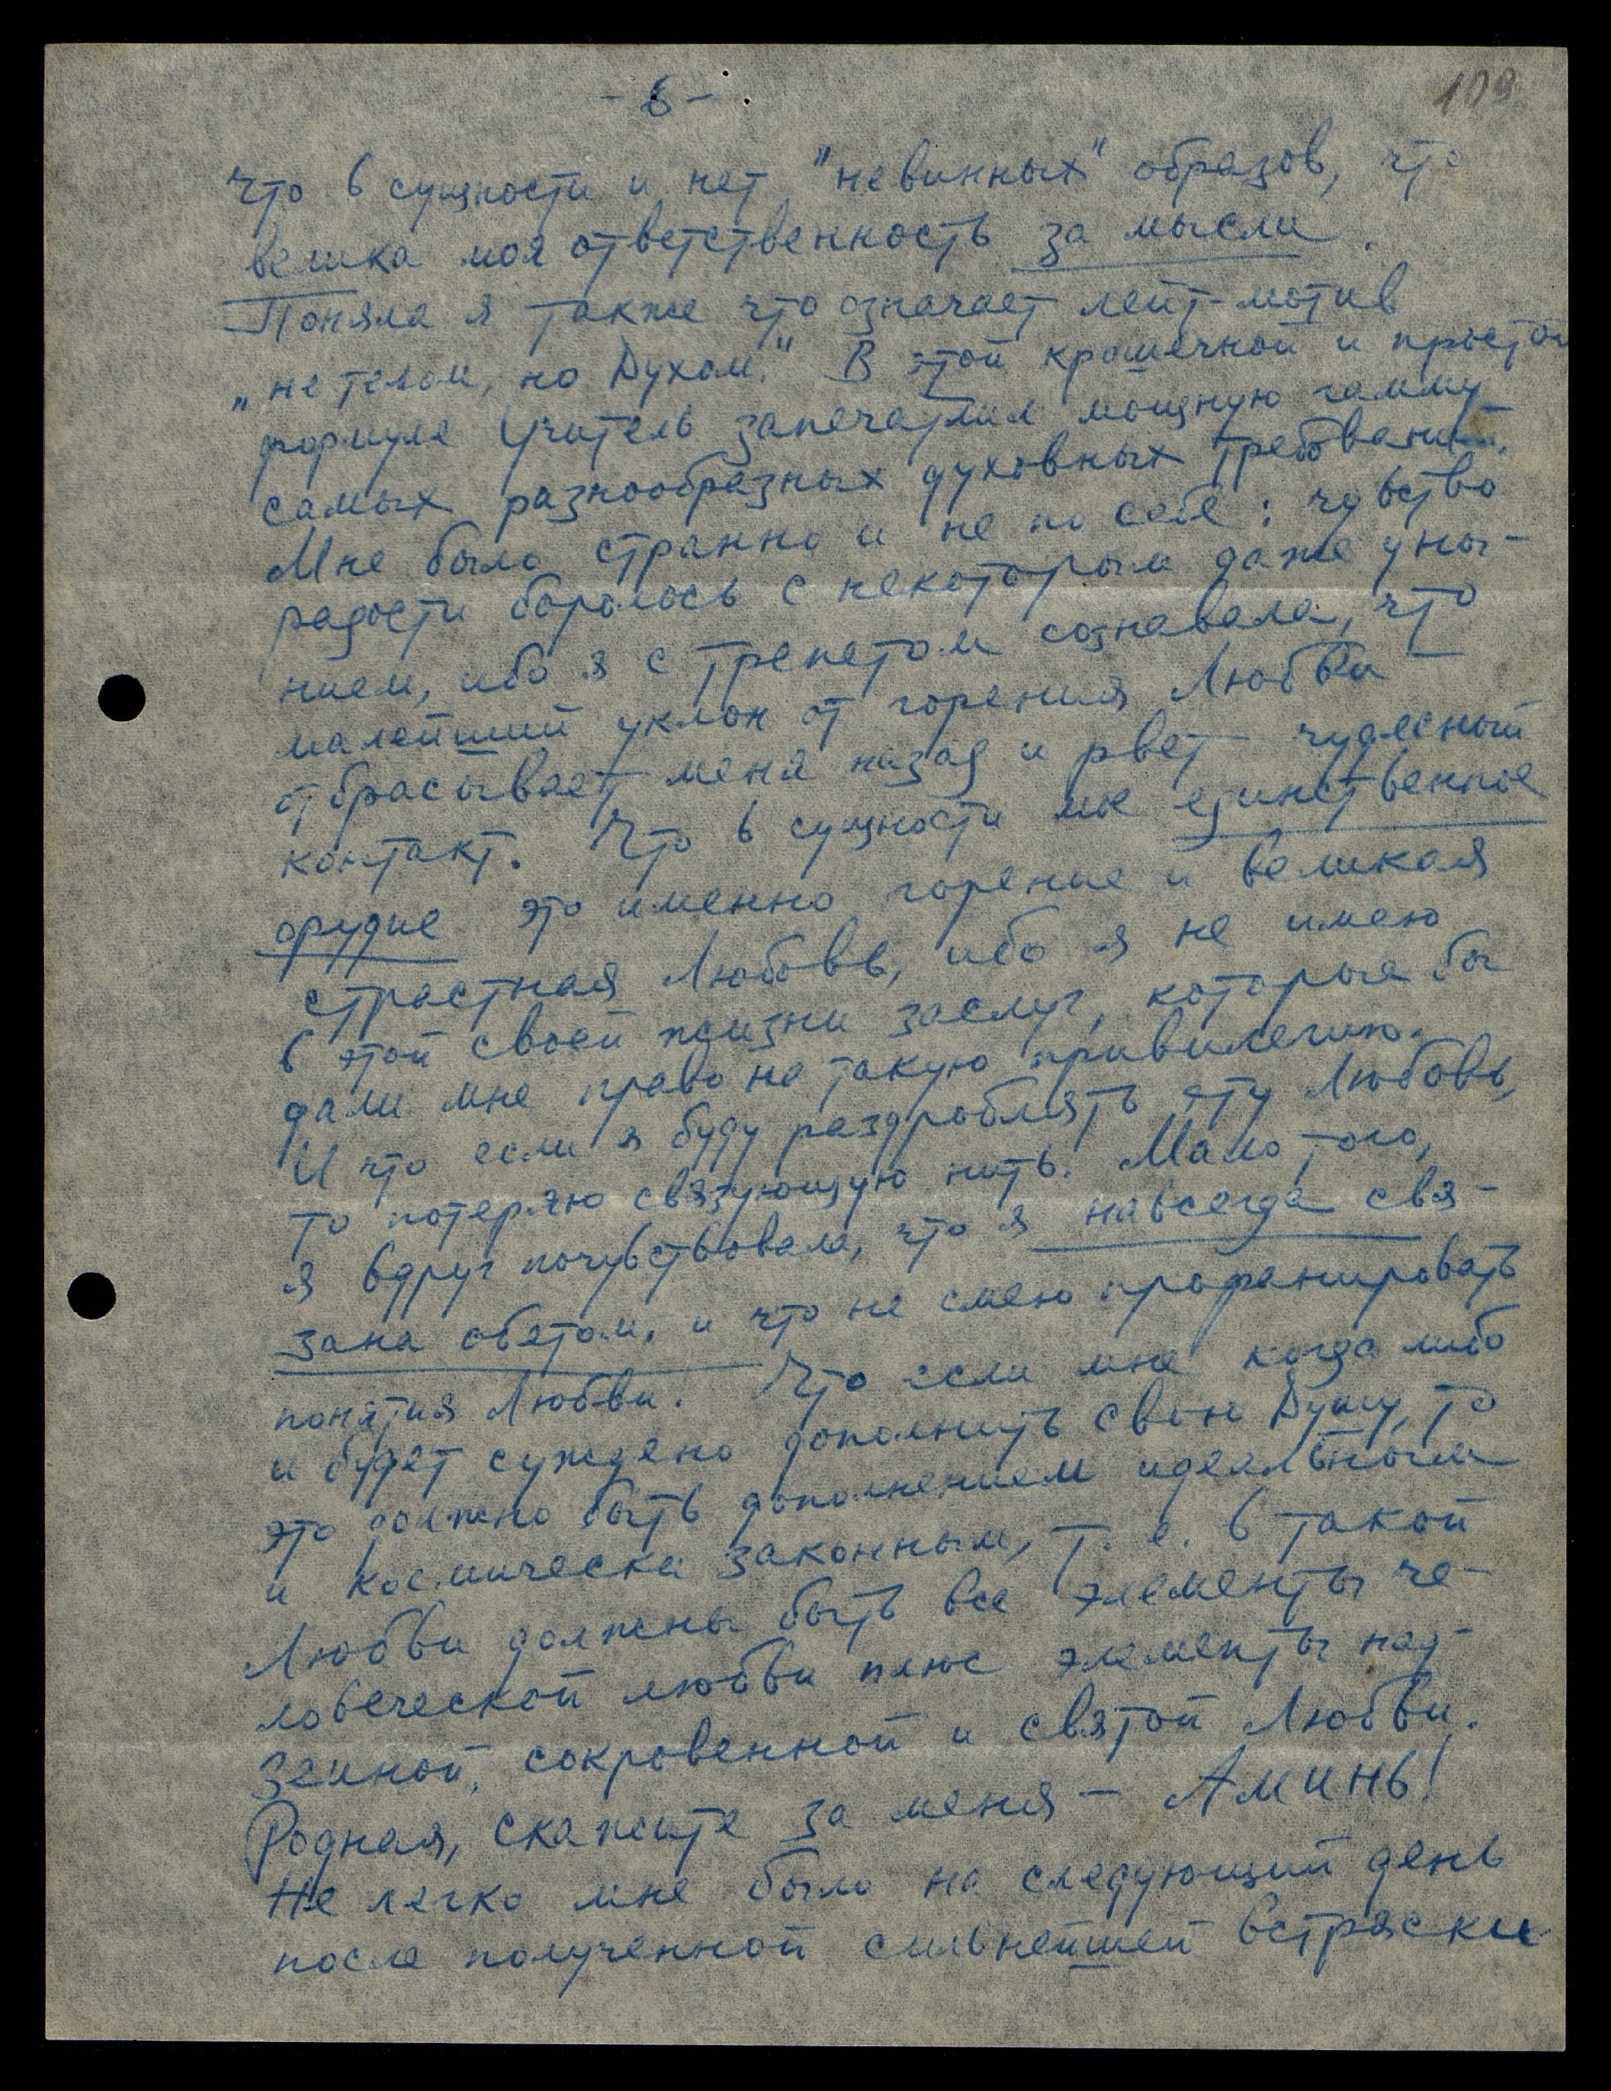 - 6 -
109
что в сущности и нет "невинных" образов, что
велика моя ответственность за мысли.
Поняла я также что означает лейт-мотив
„не телом, но Духом." В этой крошечной и простой
формуле Учитель запечатлил мощную гамму
самых разнообразных духовных требований.
Мне было странно и не по себе: чувство
радости боролось с некоторым даже уны-
нием, ибо я с трепетом сознавала, что
малейший уклон от горения Любви
отбрасывает меня назад и рвет чудесный
контакт. Что в сущности мое единственное
орудие это именно горение и великая
страстная Любовь, ибо я не имею
в этой своей жизни заслуг, которые бы
дали мне право на такую привилегию.
И что если я буду раздроблять эту Любовь,
то потеряю связующую нить. Мало того,
я вдруг почувствовала, что я навсегда свя-
зана обетом, и что не смею профанировать
понятия Любви. Что если мне когда либо
и будет суждено дополнить свою Душу, то
это должно быть дополнением идеальным
и космически законным, т. е. в такой
Любви должны быть все элементы че-
ловеческой любви плюс элементы над-
земной, сокровенной и святой Любви.
Родная, скажите за меня — Аминь!
Не легко мне было на следующий день
после полученной сильнейшей встряски